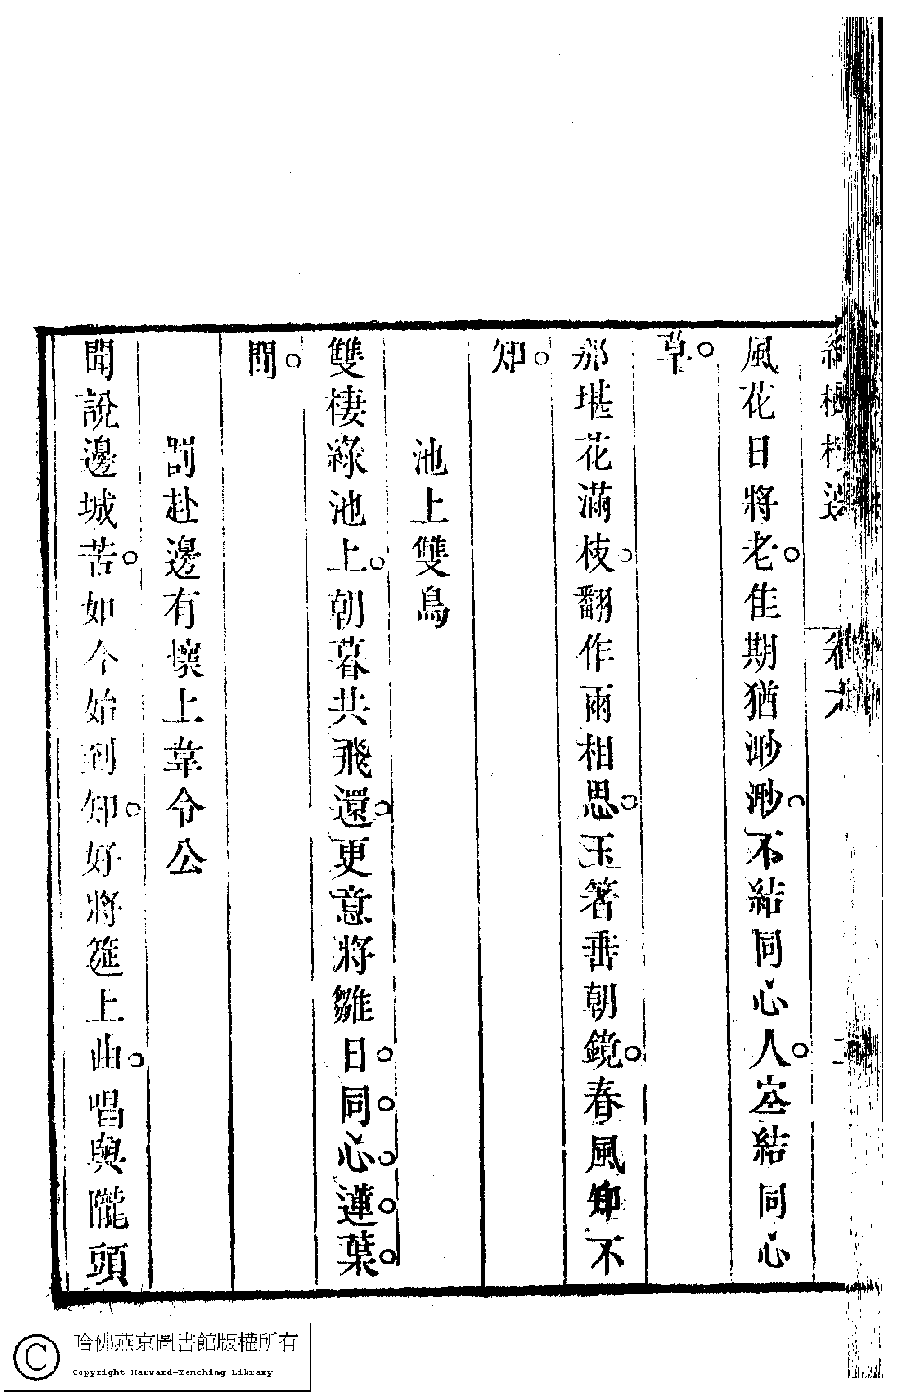 卷六
風花日將老。佳期猶渺渺。不結同心人。空結同心
草。
那堪花滿枝。翻作兩相思。玉箸垂朝鏡。春風知不
知。
池上雙鳥
雙棲綠池上。朝暮共飛還。更意將雛日。同。心。蓮。葉。
間。
罰赴邊有懷上韋令公
聞說邊城苦。如今始到知。好將筵上曲。唱與隴頭
哈佛燕京圖書館版權所有
© Copyright Harvard-Yenching Library